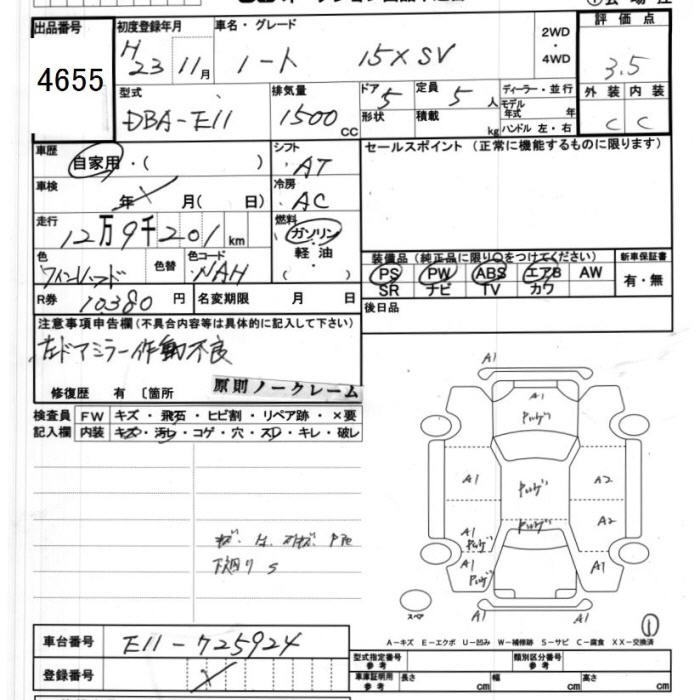 出品番号
4655
初度登録年月
H 23 11月
車名・グレード
ノート 15X SV
2WD
・
4WD
評価点
3.5
外装 内装
C C
型式
DBA-E11
排気量
1500 CC
ドア 5
形状
定員 5 人
積載 kg
ディーラー・並行
モデル年式 年
ハンドル 左・右
車歴
自家用・( )
シフト
・AT
車検
年 月( 日)
冷房
・AC
走行
12万9千201 km
燃料
ガソリン
・
軽油
・
( )
色
ワインレッド
色替
色コード
・NAH
R券 10380 円
名変期限 月 日
セールスポイント(正常に機能するものに限ります)
装備品(純正品に限り○をつけてください)
PS PW ABS エアB AW
SR ナビ TV カワ
新車保証書
有・無
後日品
注意事項申告欄(不具合内容等は具体的に記入して下さい)
左ドアミラー作動不良
修復歴 有 〔箇所
原則ノークレーム
検査員 FW キズ・飛石・ヒビ割・リペア跡・×要
記入欄 内装 キズ・汚レ・コゲ・穴・スレ・キレ・破レ
下廻り S
A1
A1
A1
A2
A2
A1
A1
A1
A1
スペア
A-キズ E-エクボ U-凹み W-補修跡 S-サビ C-腐食 XX-交換済
車台番号 E11-725924
登録番号
型式指定番号
参考
類別区分番号
参考
車庫証明用
参考
長さ cm 幅 cm 高さ cm